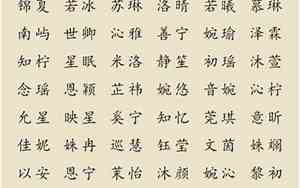 锦夏 若冰 苏琳 洛晴 若曦 慕琳
南屿 世卿 沁雅 善宁 婉瑜 泽霖
知柠 星眠 米洛 静笙 初瑶 沐萱
念瑶 恩颖 芷祎 婉悠 音婉 沁柠
允星 映星 奚宁 知忆 莞琪 意昕
佳妮 姝冉 巡慧 钰莹 文茵 姝熠
以安 恩宁 茉怡 沐颜 婉沁 黎初